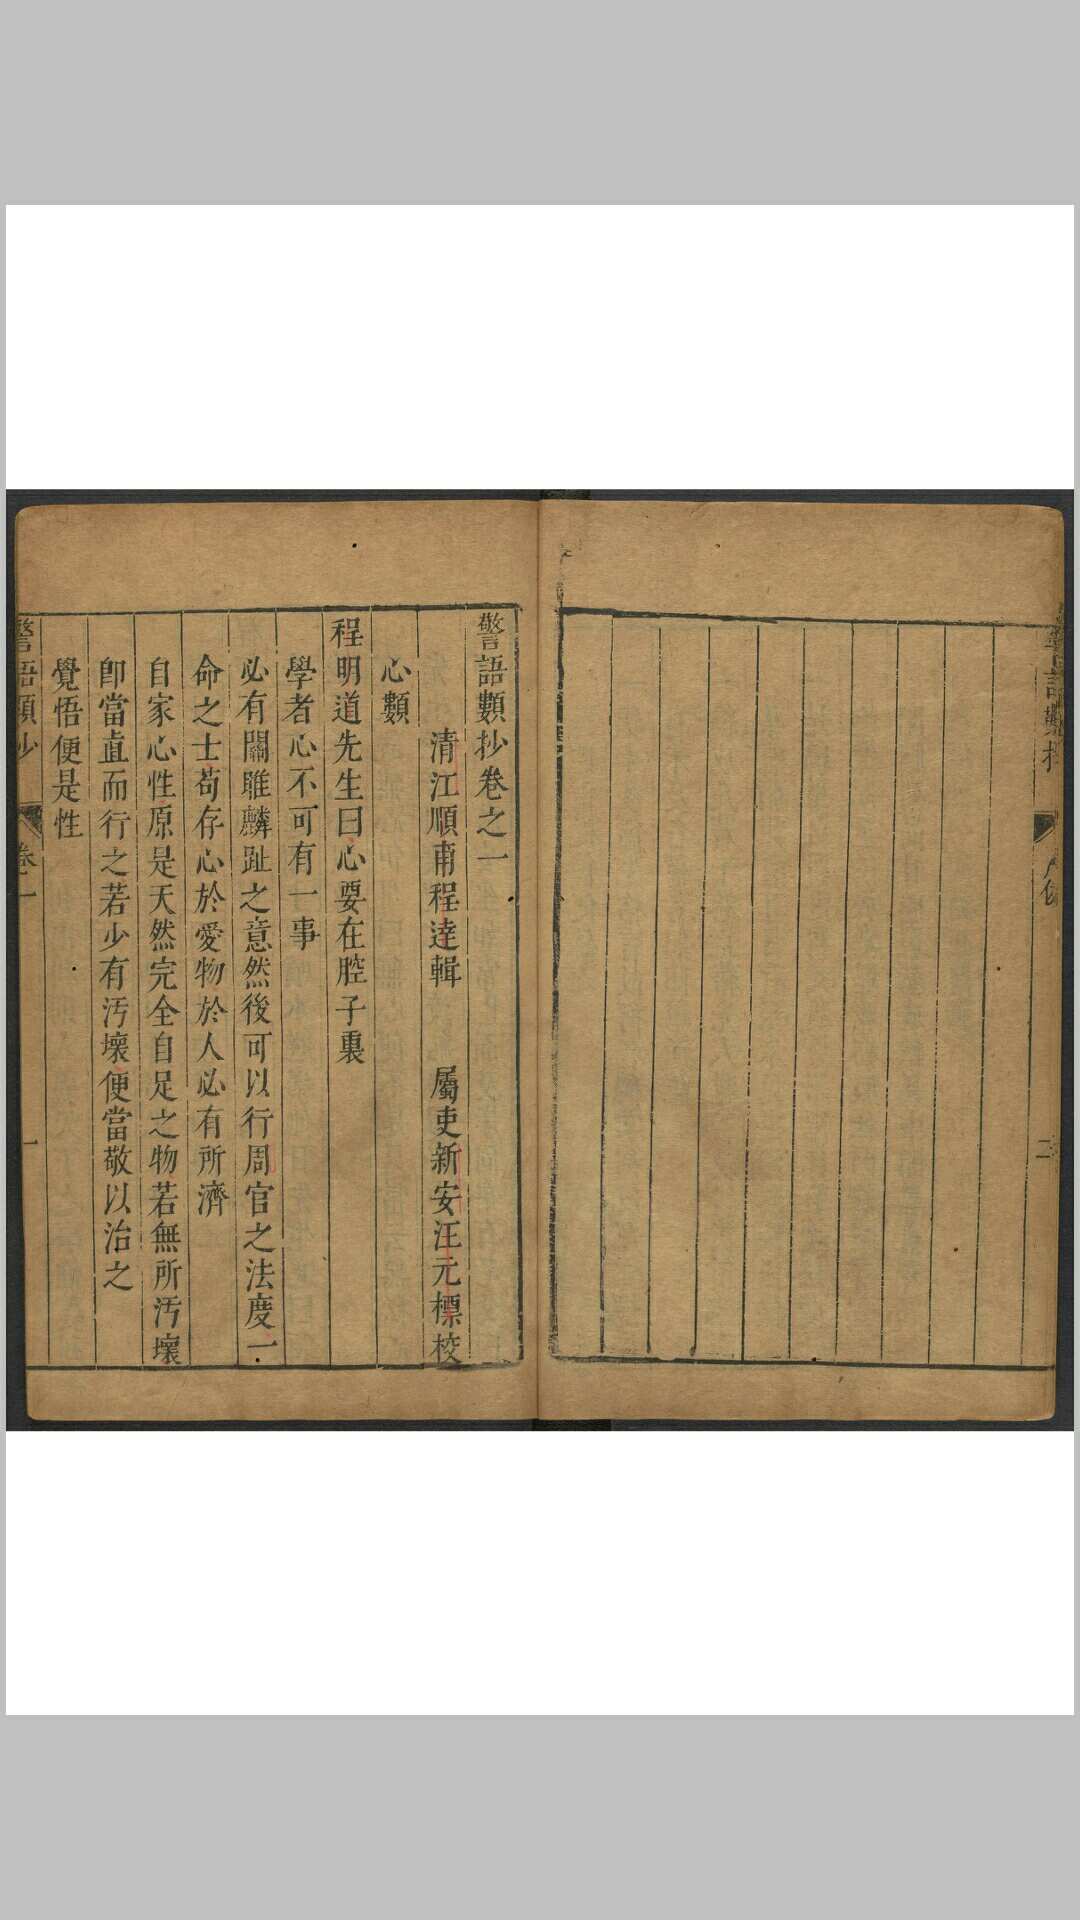 警語類抄
二
警語類抄卷之一
清江順甫程達輯 屬吏新安汪元標校
心類
程明道先生曰心要在腔子裏
學者心不可有一事
必有關雎麟趾之意然後可以行周官之法度一
命之士苟存心於愛物於人必有所濟
自家心性原是天然完全自足之物若無所汚壞
卽當直而行之若少有汚壞便當敬以治之
覺悟便是性
警語類抄 卷一 一